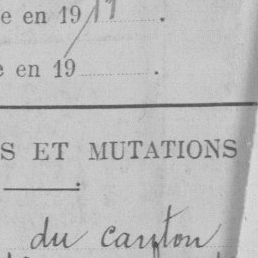 e en 1917 .
e en 19 .
S ET MUTATIONS
du canton